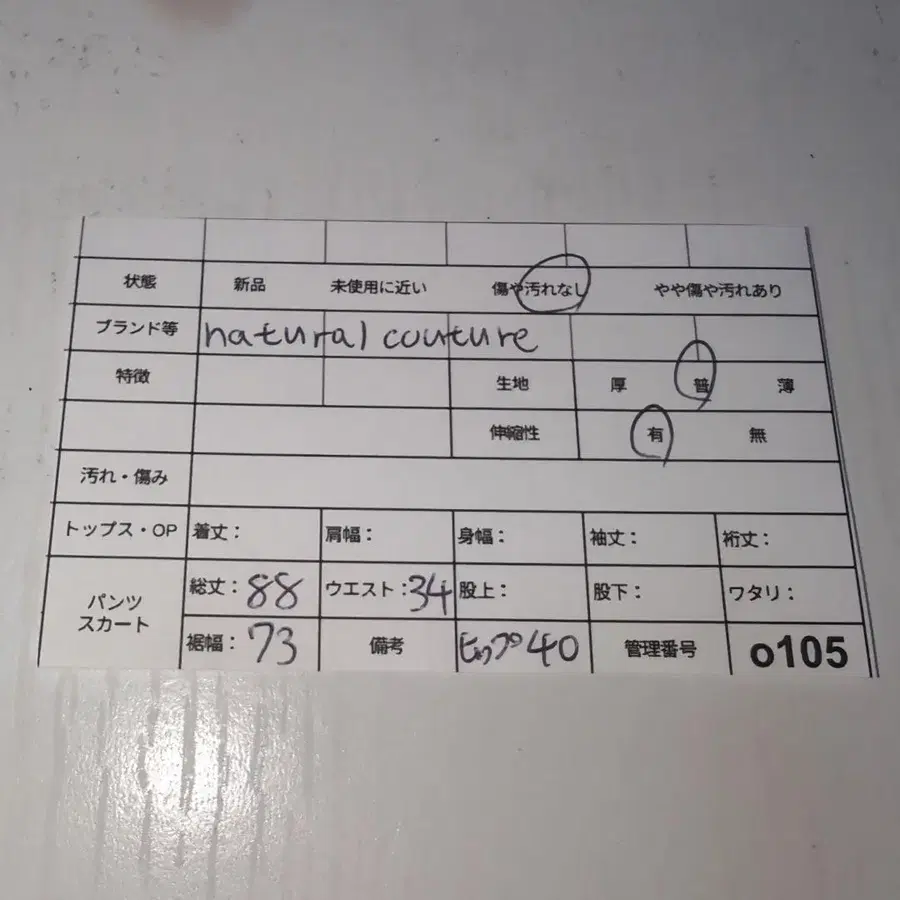 状態 新品 未使用に近い 傷や汚れなし やや傷や汚れあり
ブランド等 natural couture
特徴 生地 厚 普 薄
伸縮性 有 無
汚れ・傷み
トップス・OP 着丈： 肩幅： 身幅： 袖丈： 裄丈：
パンツ 総丈：88 ウエスト：34 股上： 股下： ワタリ：
スカート 裾幅：73 備考 ヒップ40 管理番号 o105